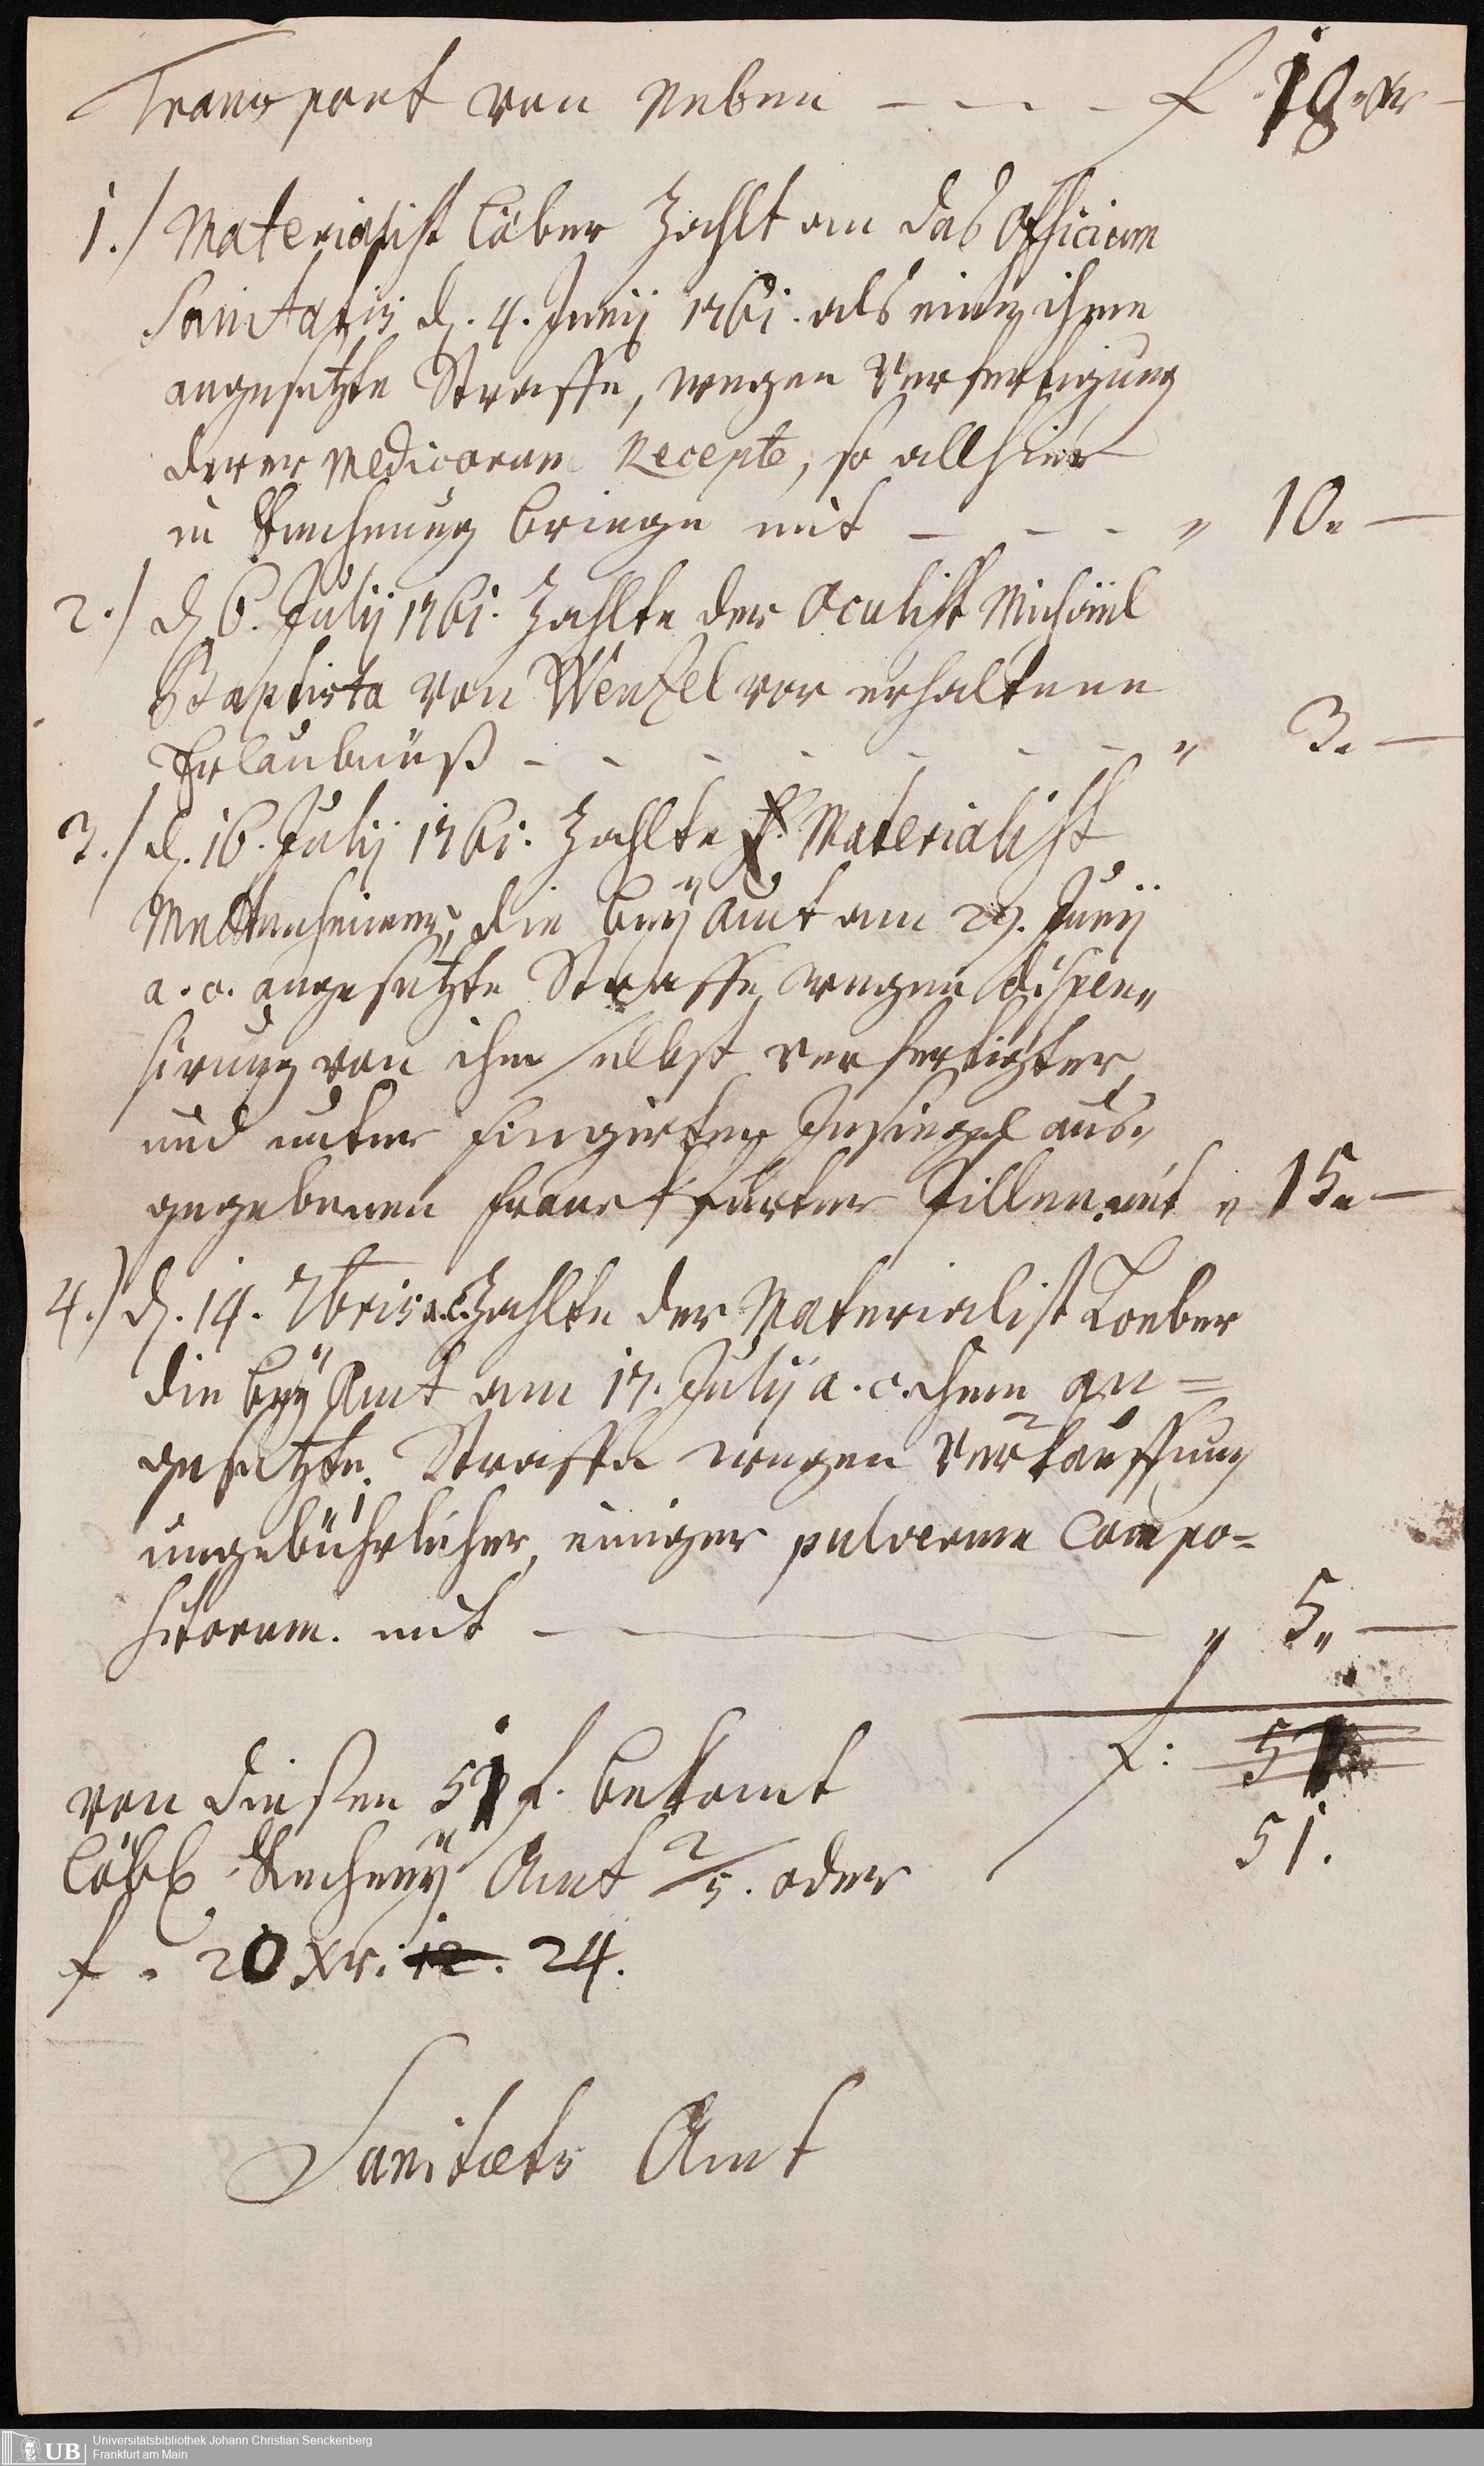 Transport von Neben - - - - f 18 Xr -
1./ Materialist Löber Zahlt an das Officium
Sanitatis d. 4. Junij 1761. als eine ihme
angesetzte Straffe, wegen Verfertigung
derer Medicorum Recepte, so allhier
in Rechnung bringe mit - - - " 10. -
2./ d 6. Julij 1761. Zahlte der Oculist Michael
Baptista von Wenzel vor erhaltene
Erlaubnüß - - - - - - - " 3. -
3./ d. 16. Julij 1761. Zahlte H. Materialist
Mettenheimer, die beÿ Amt am 29. Junij
a. c. angesetzte Straffe wegen dispen„
sirung von ihm selbst verfertigter,
und unter fingirten Insiegel aus„
gegebenen Franckfurter Pillen. mit " 15. -
4./ d. 14. 7bris a.c. Zahlte der Materialist Loeber
die beÿ Amt am 17. Julij a. c. ihm an=
gesetzte Straffe wegen Verkauffung
ungebührlicher, einiger pulverum Compo=
sitorum. mit - " 5„ -
f: 51
von diesen 51 f. bekomt
51.
Löbl Recheneÿ Amt 2/5. oder
f. 20 Xr. 12. 24.
Sanitæts Amt
UB
Universitätsbibliothek Johann Christian Senckenberg
Frankfurt am Main